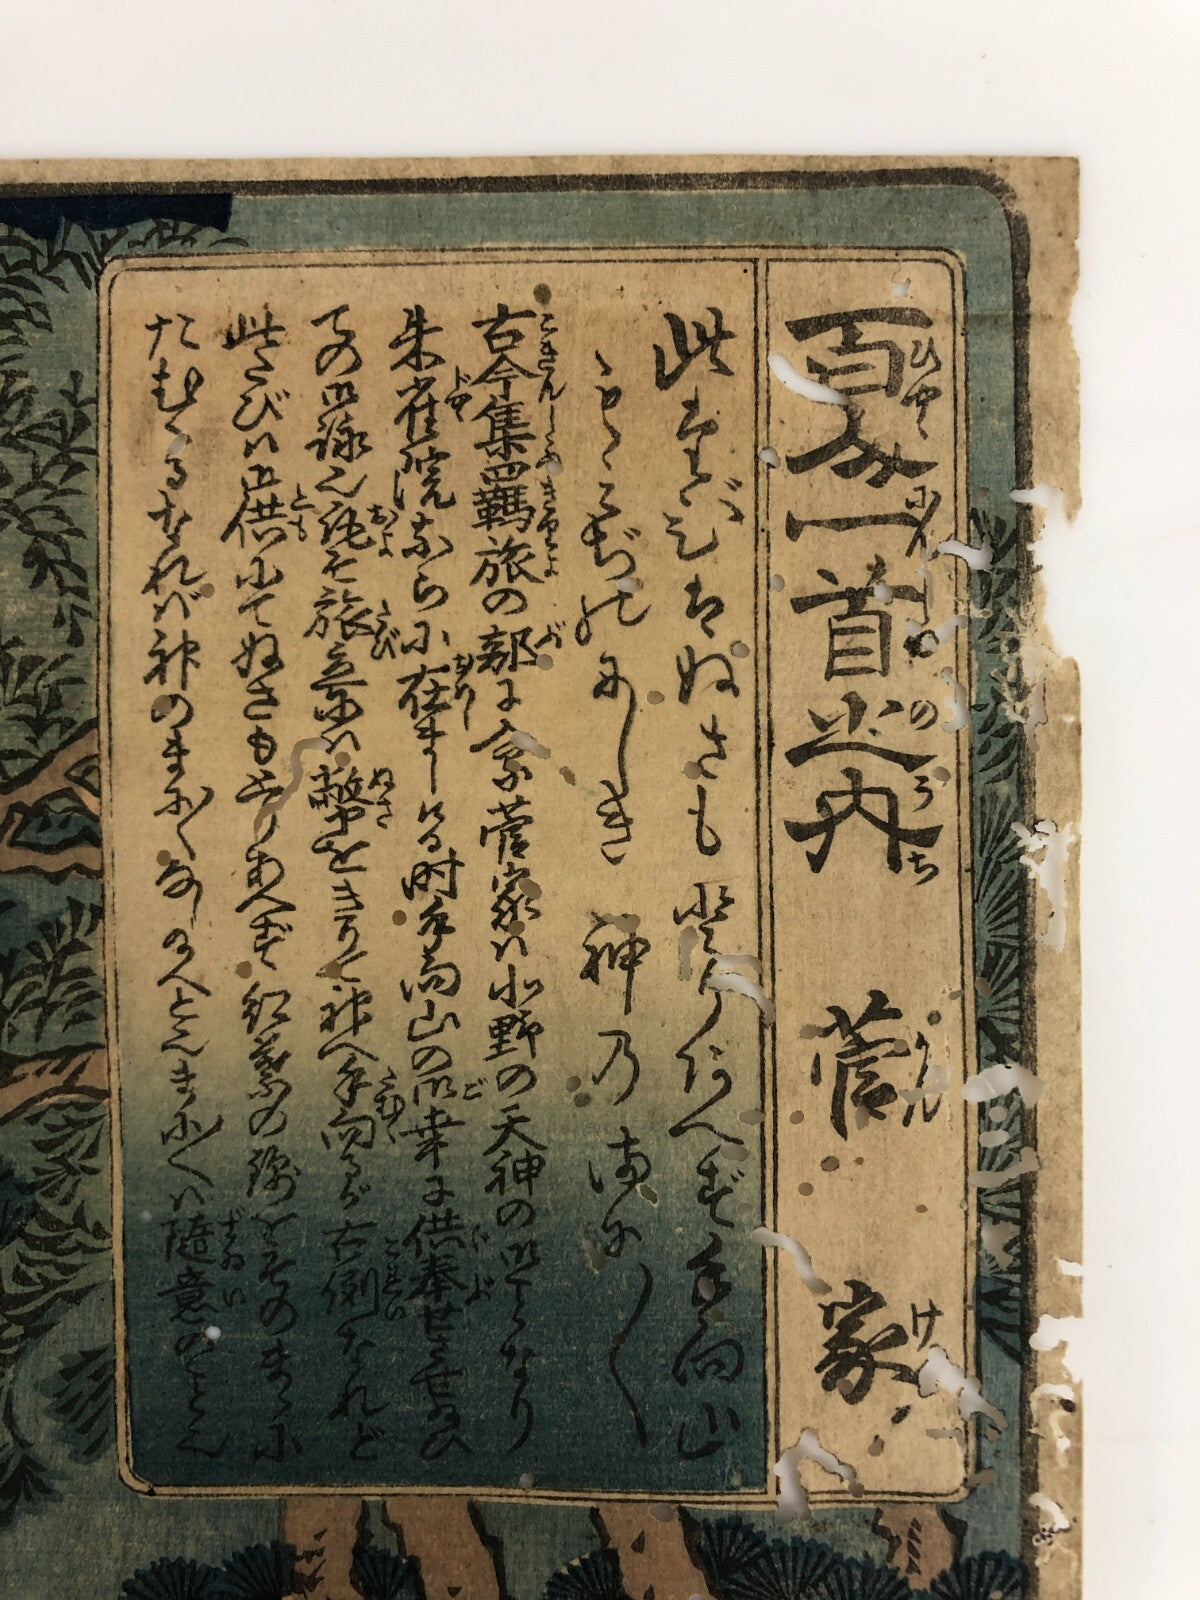 百人一首之内　菅家
此たびはぬさもとりあへず手向山
もみぢのにしき神乃まに〱
古今集羇旅の部に入菅家ハ北野の天神の御ことなり
朱雀院ならに在ましける時手向山の御幸に供奉せさせ給ひ
ての御詠也凡そ旅立にハ幣をきりて神へ手向るが古例なれど
此たびハ御供にてぬさもとりあへず紅葉の錦をそのまゝに
たむくるなれバ神のまに〱なしのへとまに〱ハ随意のこと也